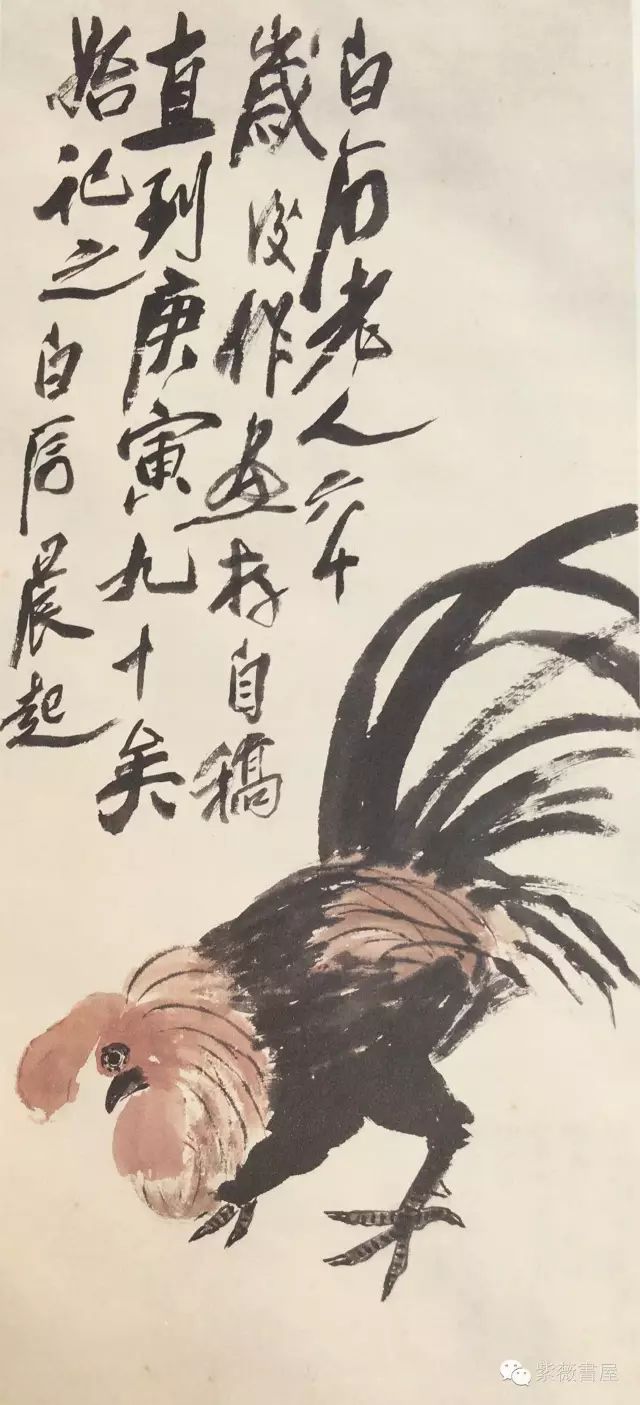 白石老人六十
歲後作画存自稿
直到庚寅九十矣
始记之白石晨起
紫薇書屋